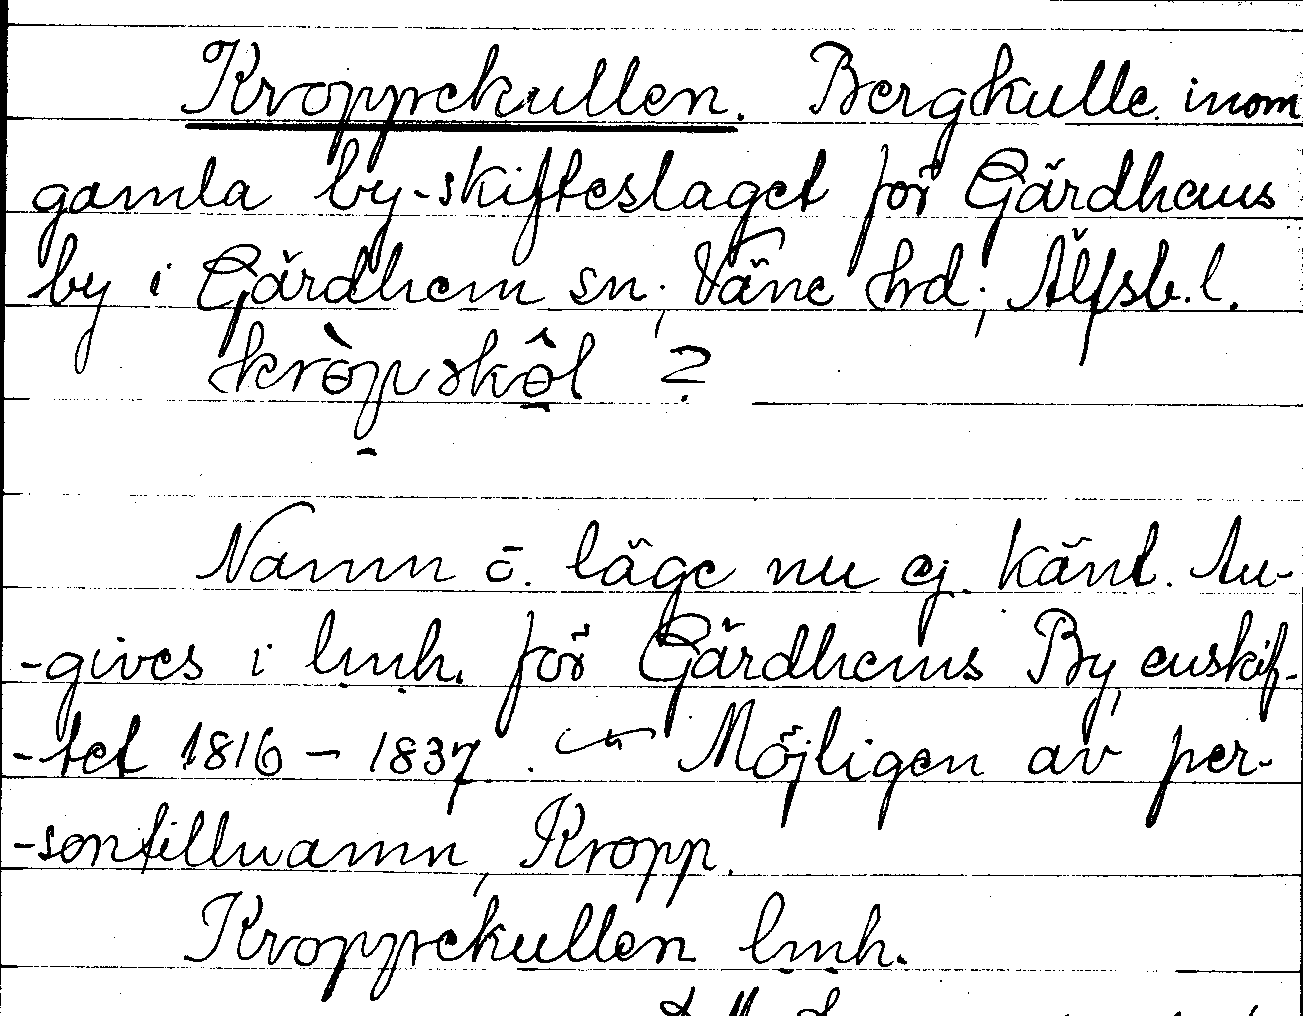 Kroppekullen. Bergkulle inom
gamla by-skifteslaget för Gärdhems
by i Gärdhem sn, Väne hd, Älfsb. l.
kròpskôl ?
Namn o. läge nu ej känt. An-
-gives i lmh. för Gärdhems By, enskif-
-tet 1816 – 1837. Möjligen av per-
-sontillnamn, Kropp.
Kroppekullen lmh.